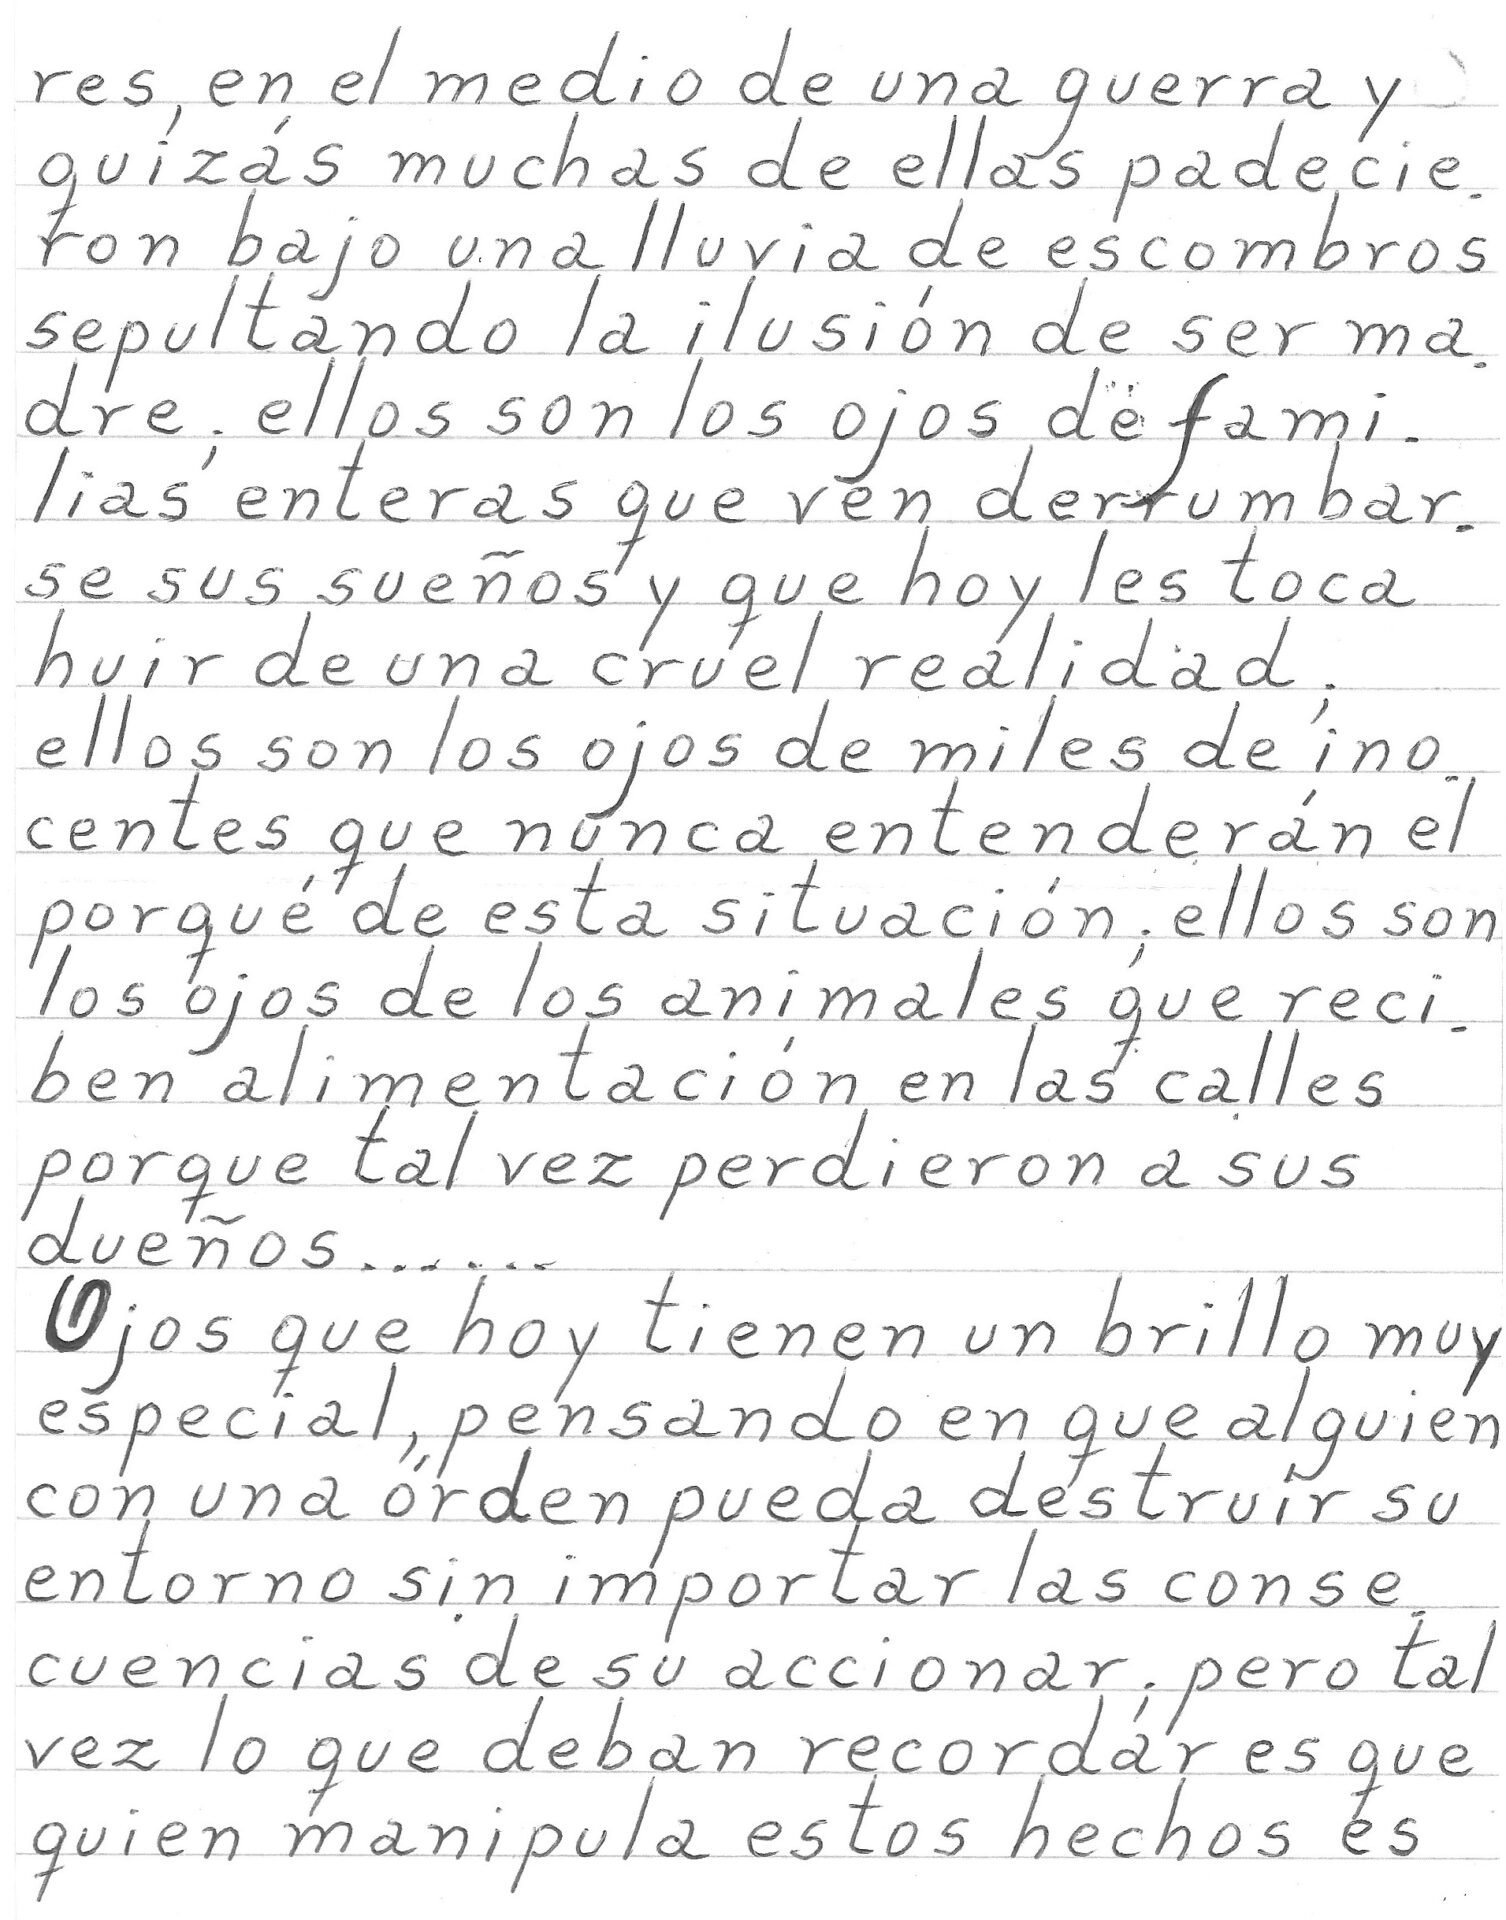 res, en el medio de una guerra y
quizás muchas de ellas padecie-
ron bajo una lluvia de escombros
sepultando la ilusión de ser ma-
dre; ellos son los ojos de fami-
lias enteras que ven derrumbar-
se sus sueños y que hoy les toca
huir de una cruel realidad;
ellos son los ojos de miles de ino-
centes que nunca entenderán el
porqué de esta situación; ellos son
los ojos de los animales que reci-
ben alimentación en las calles
porque tal vez perdieron a sus
dueños......
Ojos que hoy tienen un brillo muy
especial, pensando en que alguien
con una órden pueda destruir su
entorno sin importar las conse-
cuencias de su accionar; pero tal
vez lo que deban recordar es que
quien manipula estos hechos es